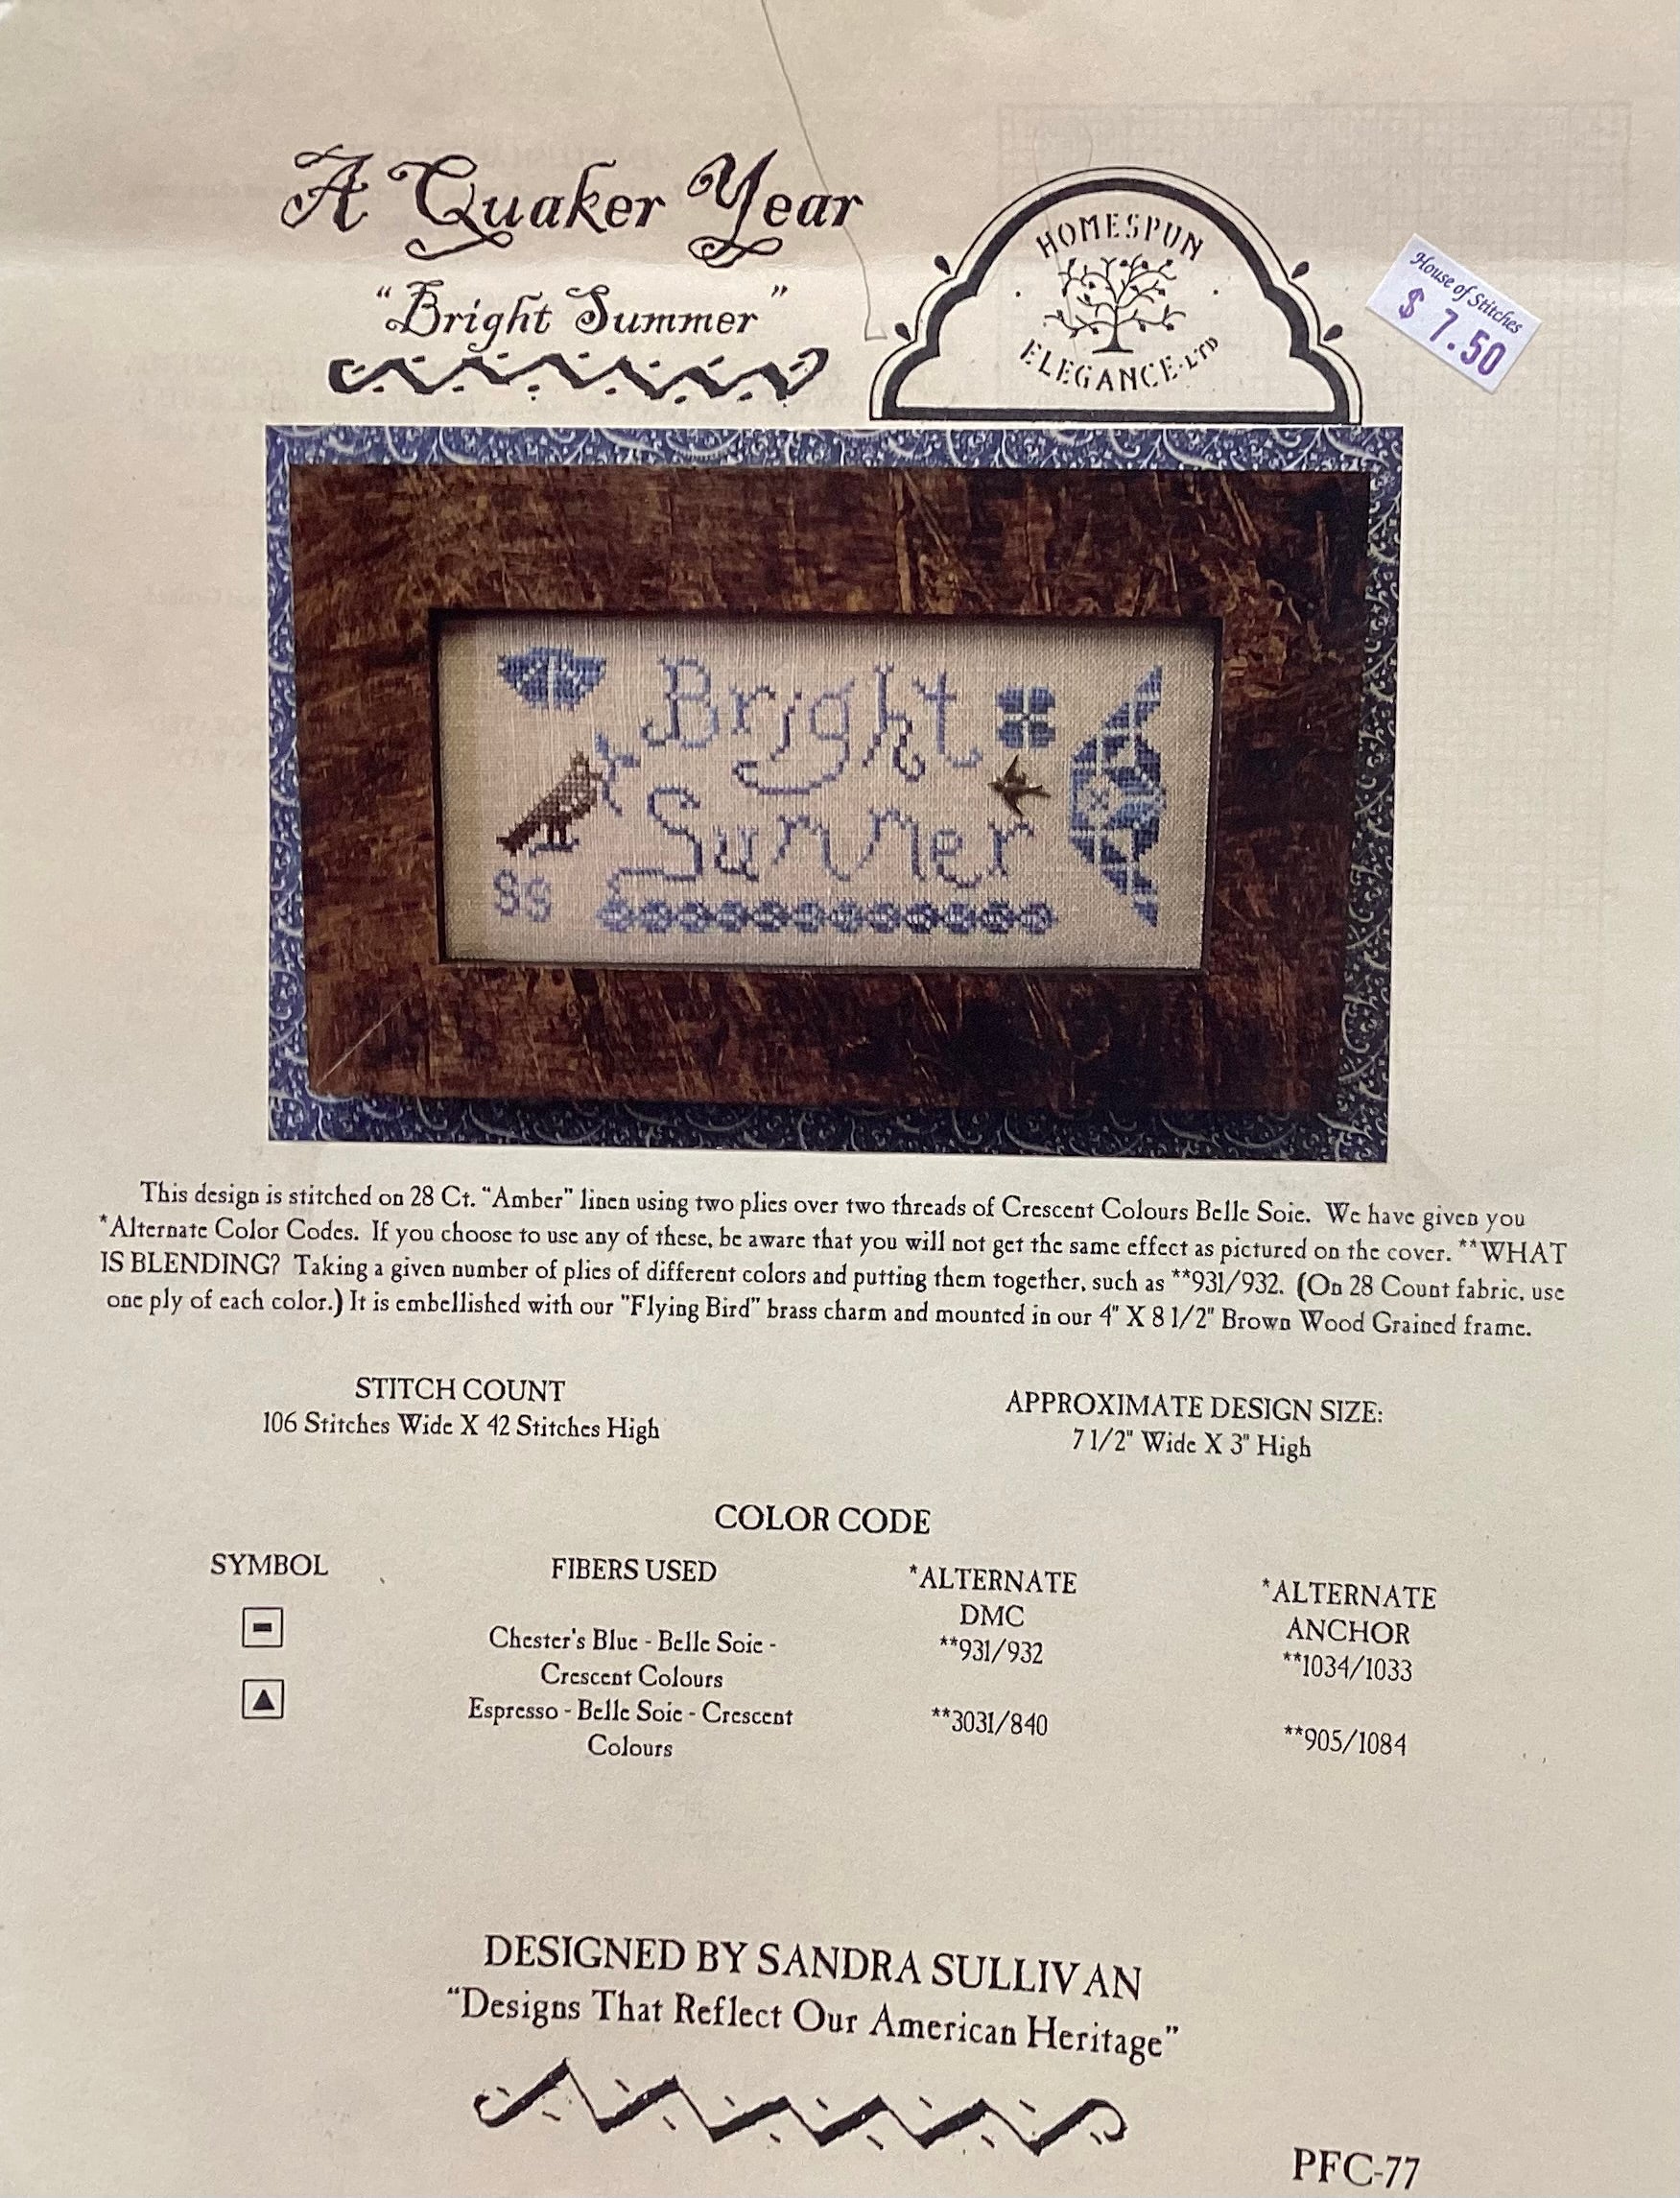 A Quaker Year
"Bright Summer"
HOMESPUN
ELEGANCE·LTD
House of Stitches
$ 7.50
Bright
Summer
SS
This design is stitched on 28 Ct. "Amber" linen using two plies over two threads of Crescent Colours Belle Soie. We have given you
*Alternate Color Codes. If you choose to use any of these, be aware that you will not get the same effect as pictured on the cover. **WHAT
IS BLENDING? Taking a given number of plies of different colors and putting them together, such as **931/932. (On 28 Count fabric, use
one ply of each color.) It is embellished with our "Flying Bird" brass charm and mounted in our 4" X 8 1/2" Brown Wood Grained frame.
STITCH COUNT
106 Stitches Wide X 42 Stitches High
APPROXIMATE DESIGN SIZE:
7 1/2" Wide X 3" High
COLOR CODE
SYMBOL
FIBERS USED
*ALTERNATE
DMC
*ALTERNATE
ANCHOR
Chester's Blue - Belle Soie -
Crescent Colours
**931/932
**1034/1033
Espresso - Belle Soie - Crescent
Colours
**3031/840
**905/1084
DESIGNED BY SANDRA SULLIVAN
"Designs That Reflect Our American Heritage"
PFC-77